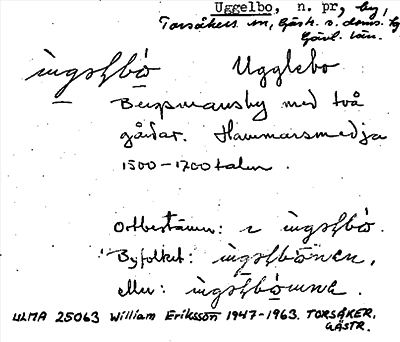 Uggelbo, n. pr, by,
Torsåkers sn, Gästr. s. doms. hg
Gävl. län.
ùgǝlbò Ugglebo
Bergsmansby med två
gårdar. Hammarsmedja
1500-1700 talen.
Ortbestäm:
Byfolket:
eller:
ULMA 25063 William Eriksson 1947-1963. TORSÅKER,
GÄSTR.